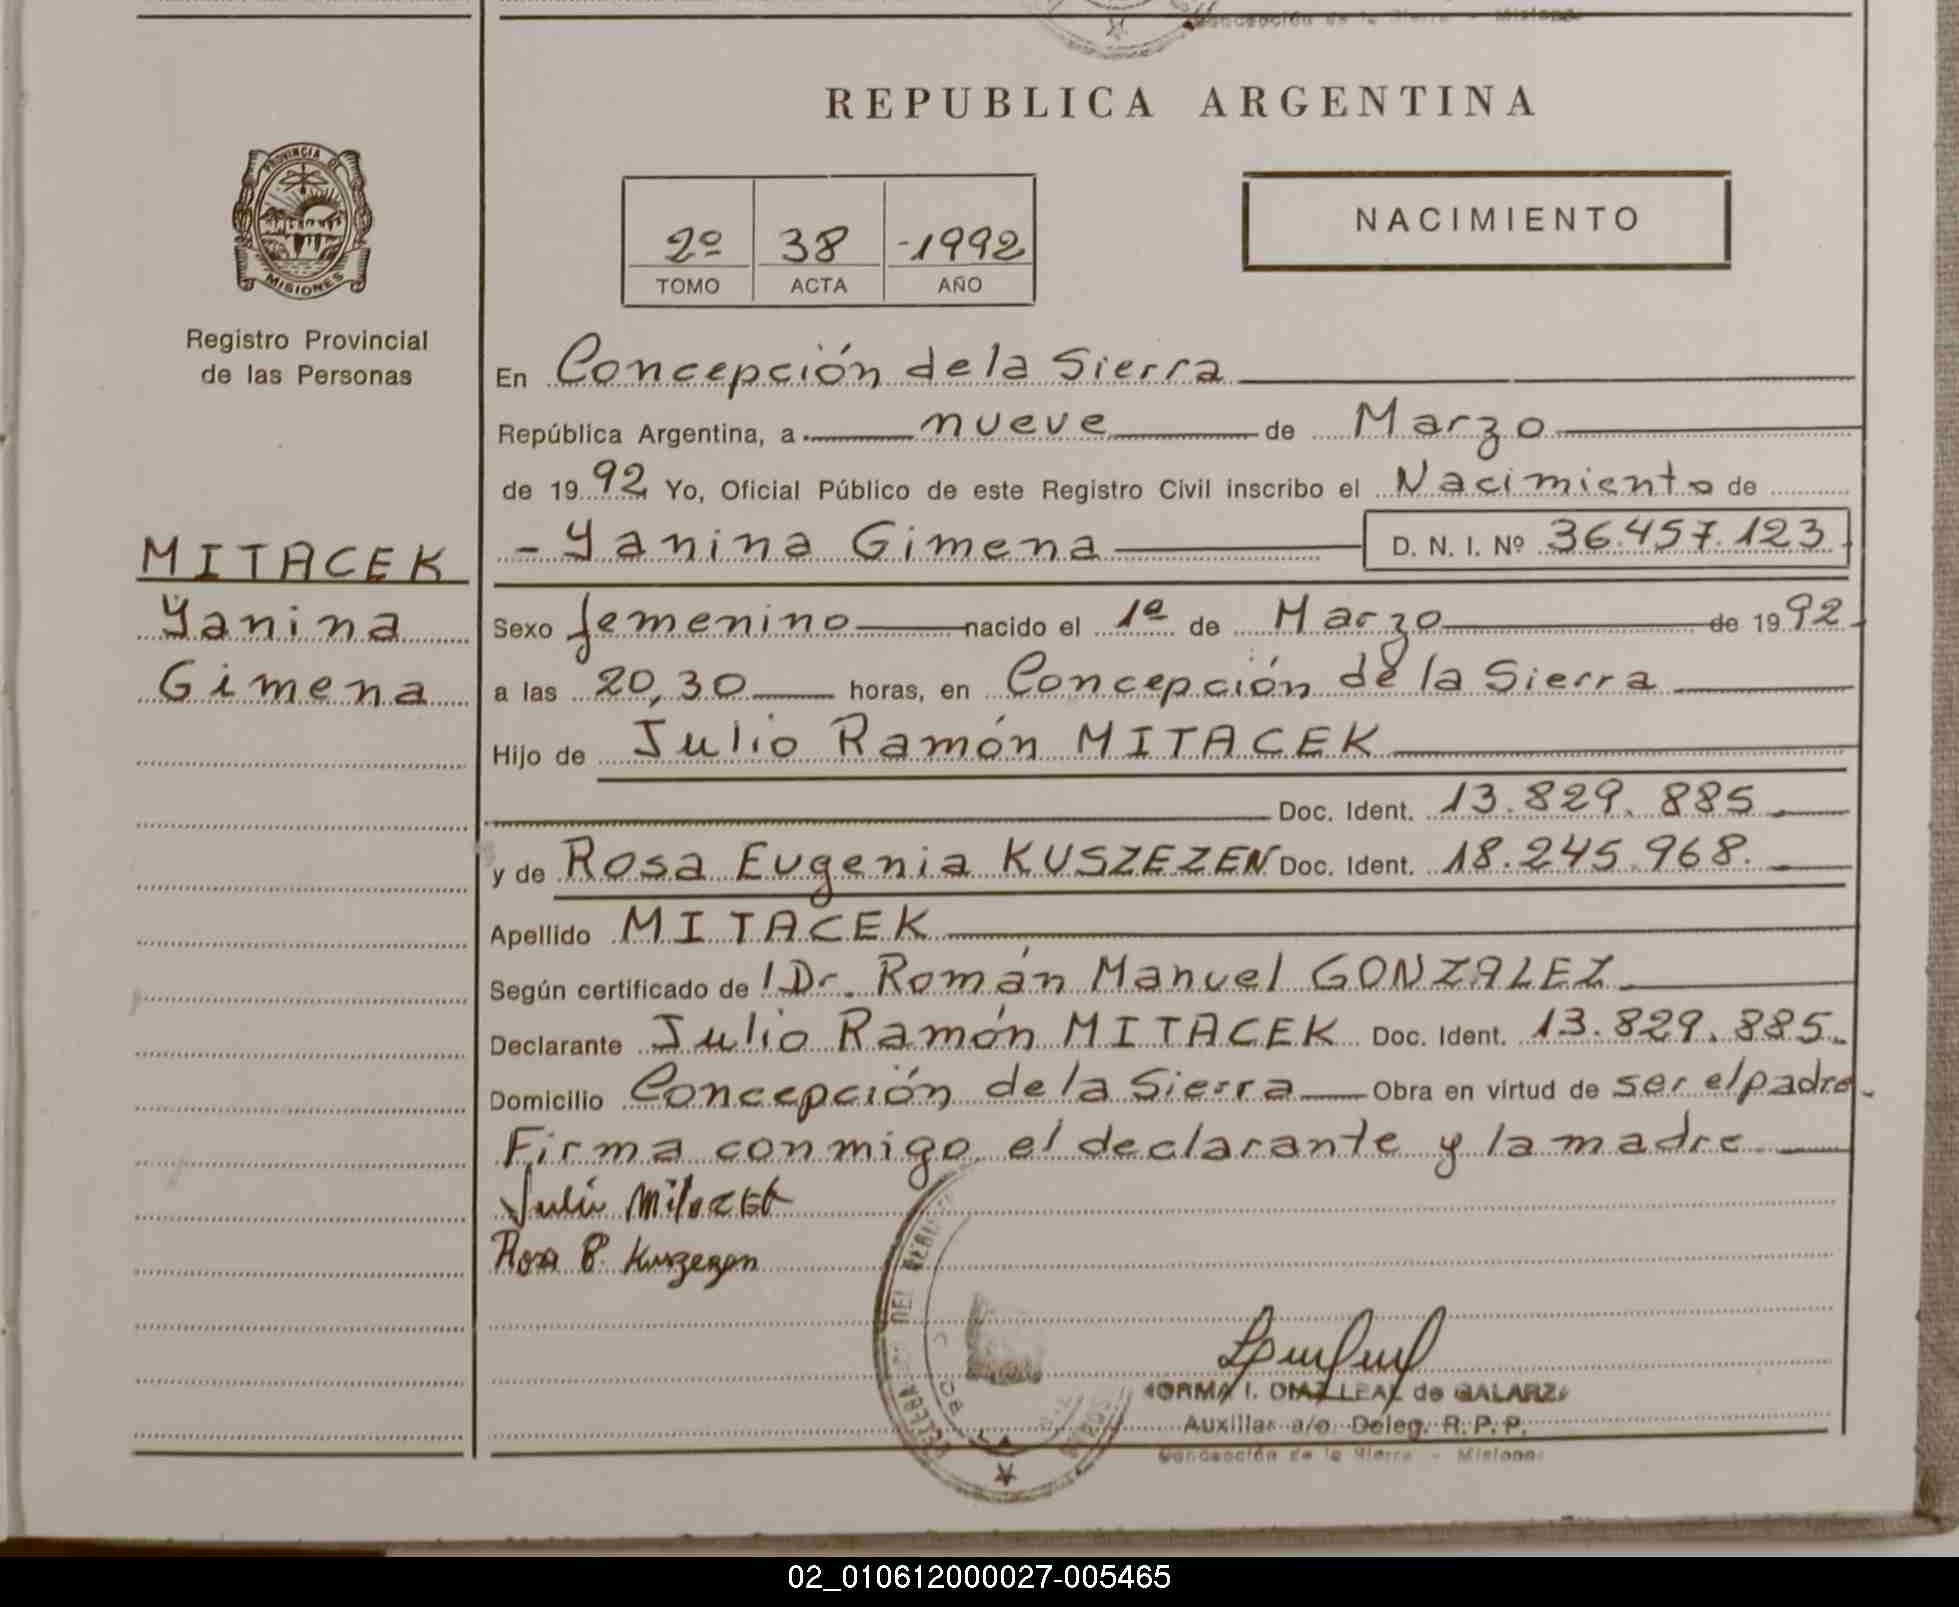 REPUBLICA ARGENTINA
PROVINCIA DE
MISIONES
Registro Provincial
de las Personas
2º 38 -1992
TOMO ACTA AÑO
NACIMIENTO
En Concepción de la Sierra
República Argentina, a nueve de Marzo
de 1992 Yo, Oficial Público de este Registro Civil inscribo el Nacimiento de
- Yanina Gimena D. N. I. Nº 36.457.123
MITACEK
Yanina
Gimena
Sexo femenino nacido el 1º de Marzo de 1992
a las 20,30 horas, en Concepción de la Sierra
Hijo de Julio Ramón MITACEK
Doc. Ident. 13.829.885
y de Rosa Eugenia KUSZEZEN Doc. Ident. 18.245.968.
Apellido MITACEK
Según certificado de Dr. Román Manuel GONZALEZ
Declarante Julio Ramón MITACEK Doc. Ident. 13.829.885.
Domicilio Concepción de la Sierra Obra en virtud de ser el padre.
Firma conmigo el declarante y la madre
Julio Mitacek
Rosa E. Kuszezen
ORMA I. DIAZ LEAL de GALARZA
Auxiliar a/c. Deleg. R. P. P.
Concepción de la Sierra - Misiones
02_010612000027-005465